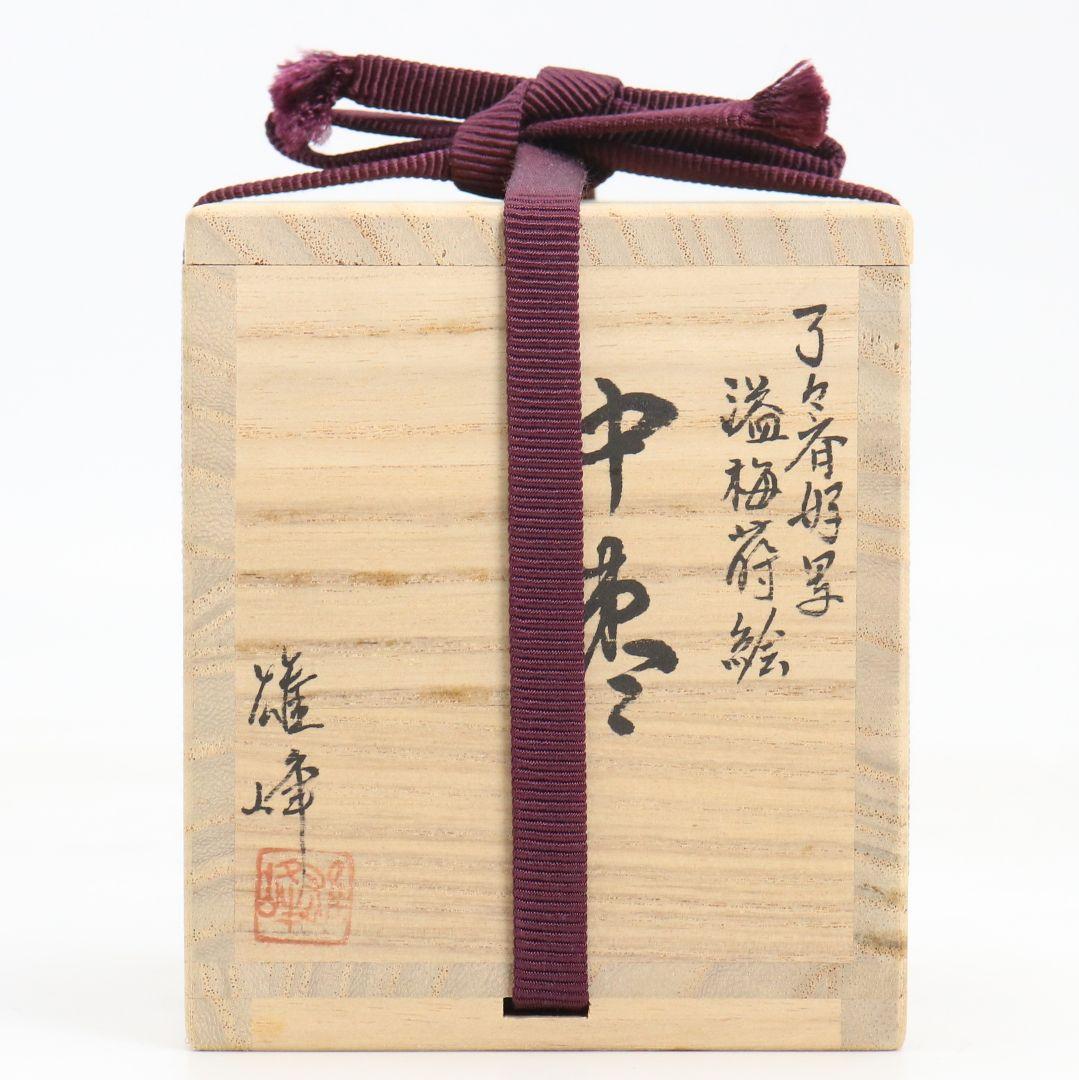 了々斎好写
溢梅蒔絵
中棗
雄峰